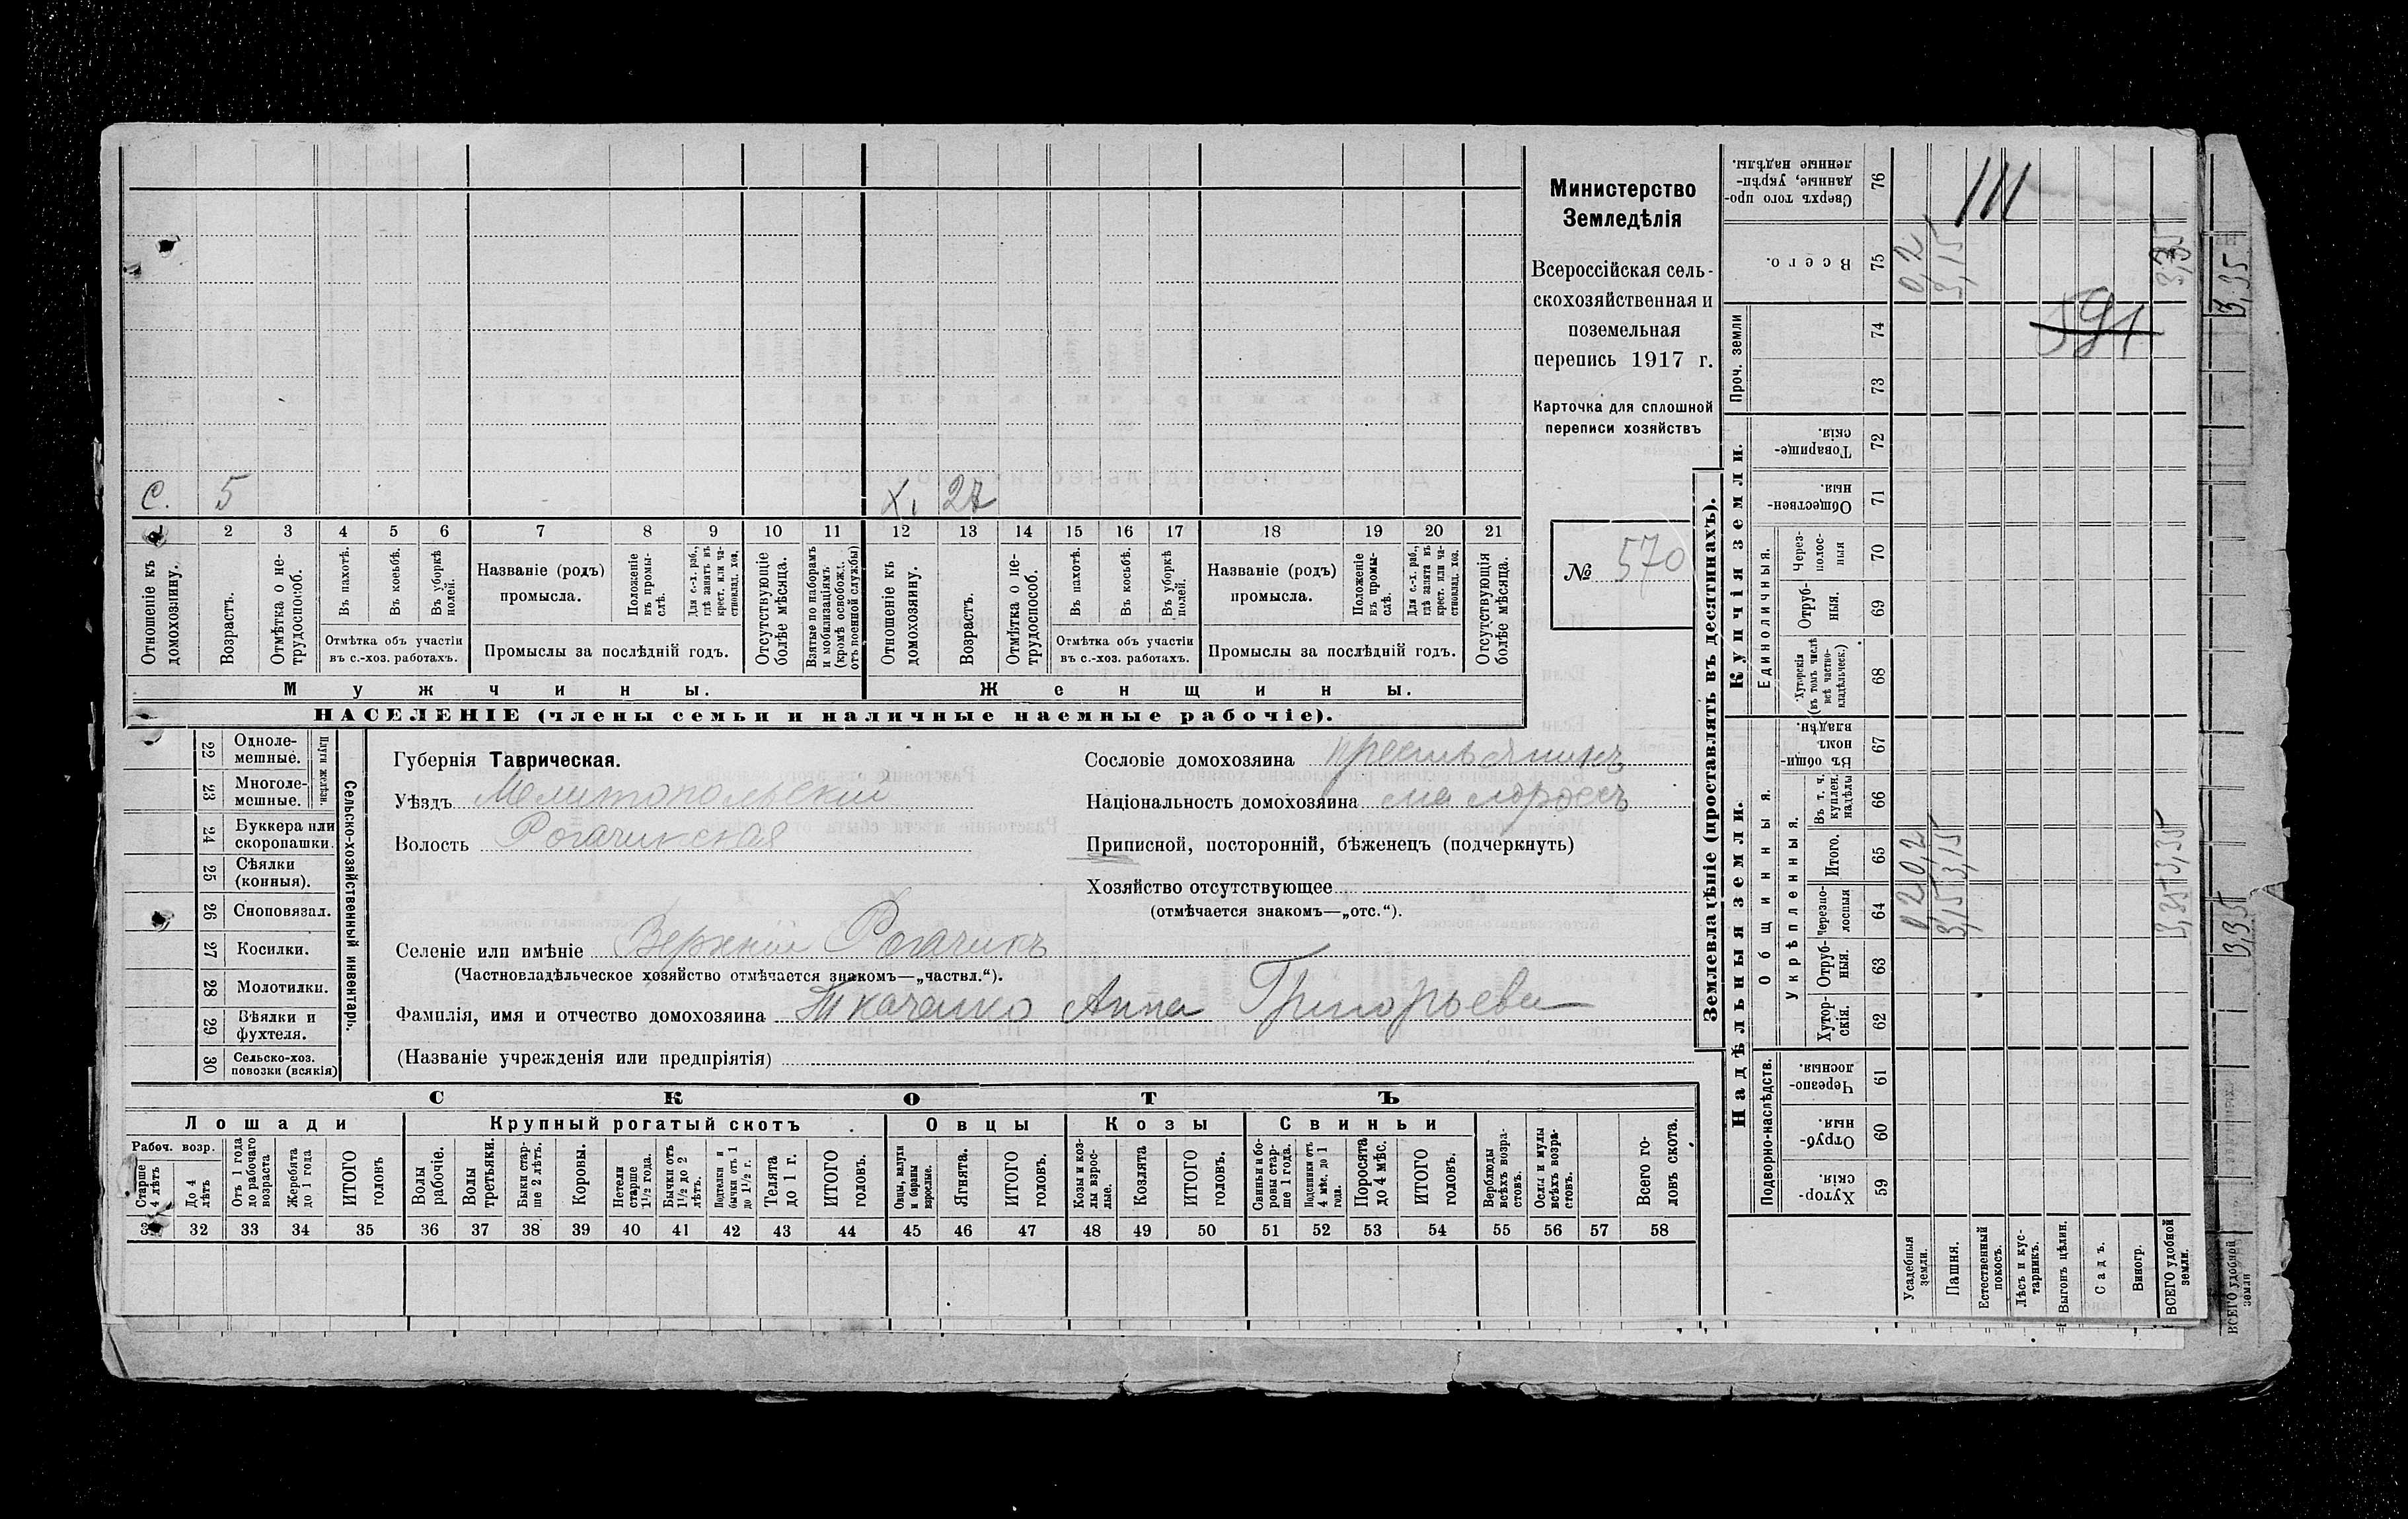 Министерство
Земледѣлія
Всероссійская сель-
скохозяйственная и
поземельная
перепись 1917 г.
Карточка для сплошной
переписи хозяйствъ
№ 570
С. 5
х. 27
1 2 3 4 5 6 7 8 9 10 11 12 13 14 15 16 17 18 19 20 21
Отношеніе къ домохозяину.
Возрастъ.
Отмѣтка о не-трудоспособ.
Въ пахотѣ.
Въ косьбѣ.
Въ уборкѣ полей.
Отмѣтка объ участіи
въ с.-хоз. работахъ.
Названіе (родъ)
промысла.
Положеніе въ промы-слѣ.
Для с.-х. раб., гдѣ занятъ въ крест. или ча-стновлад. хоз.
Промыслы за послѣдній годъ.
Отсутствующіе болѣе мѣсяца.
Взятые по наборамъ и мобилизаціямъ (кромѣ освобожд. отъ военной службы)
Отношеніе къ домохозяину.
Возрастъ.
Отмѣтка о не-трудоспособ.
Въ пахотѣ.
Въ косьбѣ.
Въ уборкѣ полей.
Отмѣтка объ участіи
въ с.-хоз. работахъ.
Названіе (родъ)
промысла.
Положеніе въ промы-слѣ.
Для с.-х. раб., гдѣ занята въ крест. или ча-стновлад. хоз.
Промыслы за послѣдній годъ.
Отсутствующія болѣе мѣсяца.
Мужчины.
Женщины.
НАСЕЛЕНІЕ (члены семьи и наличные наемные рабочіе).
Сельско-хозяйственный инвентарь.
Плуги желѣзн.
22 Одноле-мешные.
23 Многоле-мешные.
24 Буккера или скоропашки.
25 Сѣялки (конныя).
26 Сноповязал.
27 Косилки.
28 Молотилки.
29 Вѣялки и фухтеля.
30 Сельско-хоз. повозки (всякія)
Губернія Таврическая.
Уѣздъ Мелитопольскій
Волость Рогачикская
Селеніе или имѣніе Верхній Рогачикъ
(Частновладѣльческое хозяйство отмѣчается знакомъ—„частвл.“).
Фамилія, имя и отчество домохозяина Ткаченко Анна Григорьева
(Названіе учрежденія или предпріятія)
Сословіе домохозяина крестьянинъ
Національность домохозяина малороссъ
Приписной, посторонній, бѣженецъ (подчеркнуть)
Хозяйство отсутствующее
(отмѣчается знакомъ—„отс.“).
СКОТЪ
Лошади
Крупный рогатый скотъ
Овцы
Козы
Свиньи
Рабоч. возр.
Старше 4 лѣтъ
До 4 лѣтъ
Отъ 1 года до рабочаго возраста
Жеребята до 1 года
ИТОГО головъ
Волы рабочіе.
Волы третьяки.
Быки стар-ше 2 лѣтъ.
Коровы.
Нетели старше 1½ года.
Бычки отъ 1½ до 2 лѣтъ.
Подтелки и бычки отъ 1 до 1½ г.
Телята до 1 г.
ИТОГО головъ.
Овцы, валухи и бараны взрослые.
Ягнята.
ИТОГО головъ.
Козы и коз-лы взрос-лые.
Козлята
ИТОГО головъ.
Свиньи и бо-ровы стар-ше 1 года.
Подсвинки отъ 4 мѣс. до 1 года.
Поросята до 4 мѣс.
ИТОГО головъ.
Верблюды всѣхъ возра-стовъ.
Ослы и мулы всѣхъ возра-стовъ.
Всего го-ловъ скота.
32 33 34 35 36 37 38 39 40 41 42 43 44 45 46 47 48 49 50 51 52 53 54 55 56 57 58
Землевладѣніе (проставлять въ десятинахъ).
Надѣльныя земли.
Купчія земли.
Проч. земли
Подворно-наслѣдств.
Общинныя.
Укрѣпленныя.
Единоличныя.
Хутор-скія. 59
Отруб-ныя. 60
Черезпо-лосныя. 61
Хутор-скія. 62
Отруб-ныя. 63
Черезпо-лосныя 64
Итого. 65
Въ т. ч. куплен. надѣлы 66
Въ общи-номъ владѣн. 67
Хуторскія (въ томъ числѣ всѣ частно-владѣльческ.) 68
Отруб-ныя. 69
Через-полос-ныя 70
Обществен-ныя. 71
Товарище-скія. 72
73
74
Всего. 75
Сверхъ того про-данные, укрѣп-ленные надѣлы. 76
Усадебныя земли. 0,2 0,2 0,2
Пашня. 3,15 3,15 3,15
Естественный покосъ.
Лѣсъ и кус-тарникъ.
Выгонъ цѣлин.
Садъ.
Виногр.
ВСЕГО удобной земли. 3,35 3,35 3,35
591
ВСЕГО удобной земли
3,35 3,35